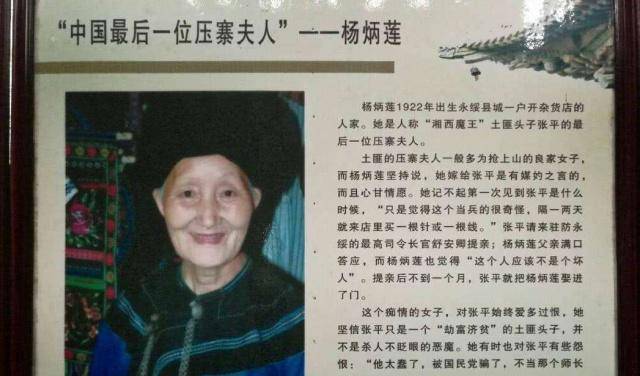 “中国最后一位压寨夫人”——杨炳莲
杨炳莲1922年出生永绥县城一户开杂货店的
人家。她是人称“湘西魔王”土匪头子张平的最
后一位压寨夫人。
土匪的压寨夫人一般多为抢上山的良家女子，
而杨炳莲坚持说，她嫁给张平是有媒妁之言的，
而且心甘情愿。她记不起第一次见到张平是什么
时候，“只是觉得这个当兵的很奇怪，隔一两天
就来店里买一根针或一根线。”张平请来驻防永
绥的最高司令长官舒安卿提亲；杨炳莲父亲满口
答应，而杨炳莲也觉得“这个人应该不是个坏
人”。提亲后不到一个月，张平就把杨炳莲娶进
了门。
这个痴情的女子，对张平始终爱多过恨，她
坚信张平只是一个“劫富济贫”的土匪头子，并
不是杀人不眨眼的恶魔。她有时也对张平有些怨
恨：“他太蠢了，被国民党骗了，不当那个师长